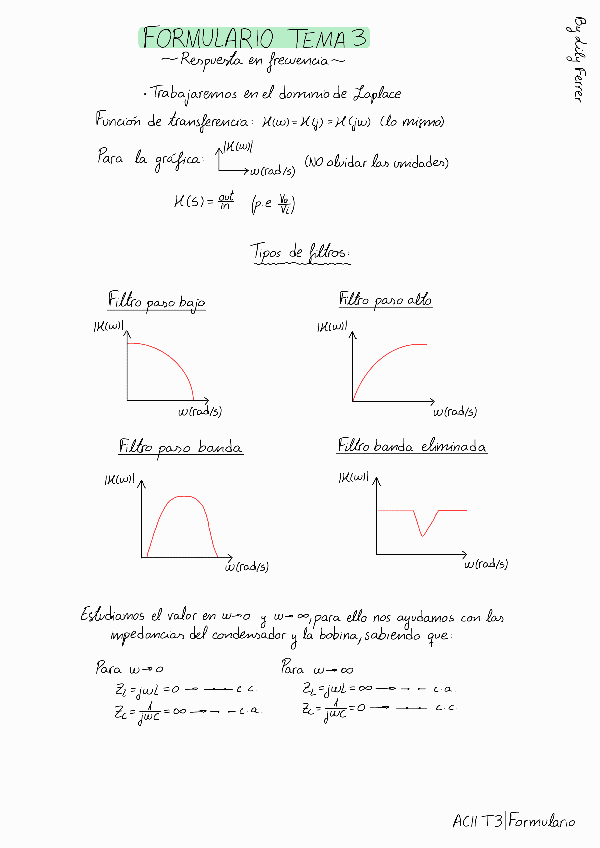 FORMULARIO TEMA 3
~ Respuesta en frecuencia ~
By Lily Ferrer
· Trabajaremos en el dominio de Laplace
Función de transferencia: H(w) = H(j) = H(jw) (lo mismo)
Para la gráfica: |H(w)| w(rad/s) (NO olvidar las unidades)
H(s) = out/in (p.e Vo/Vi)
Tipos de filtros:
Filtro paso bajo
|H(w)|
w(rad/s)
Filtro paso alto
|H(w)|
w(rad/s)
Filtro paso banda
|H(w)|
w(rad/s)
Filtro banda eliminada
|H(w)|
w(rad/s)
Estudiamos el valor en w→0 y w→∞, para ello nos ayudamos con las
impedancias del condensador y la bobina, sabiendo que:
Para w→0
ZL = jwL = 0 → c.c.
ZC = 1/jwC = ∞ → c.a.
Para w→∞
ZL = jwL = ∞ → c.a.
ZC = 1/jwC = 0 → c.c.
ACII T3 | Formulario